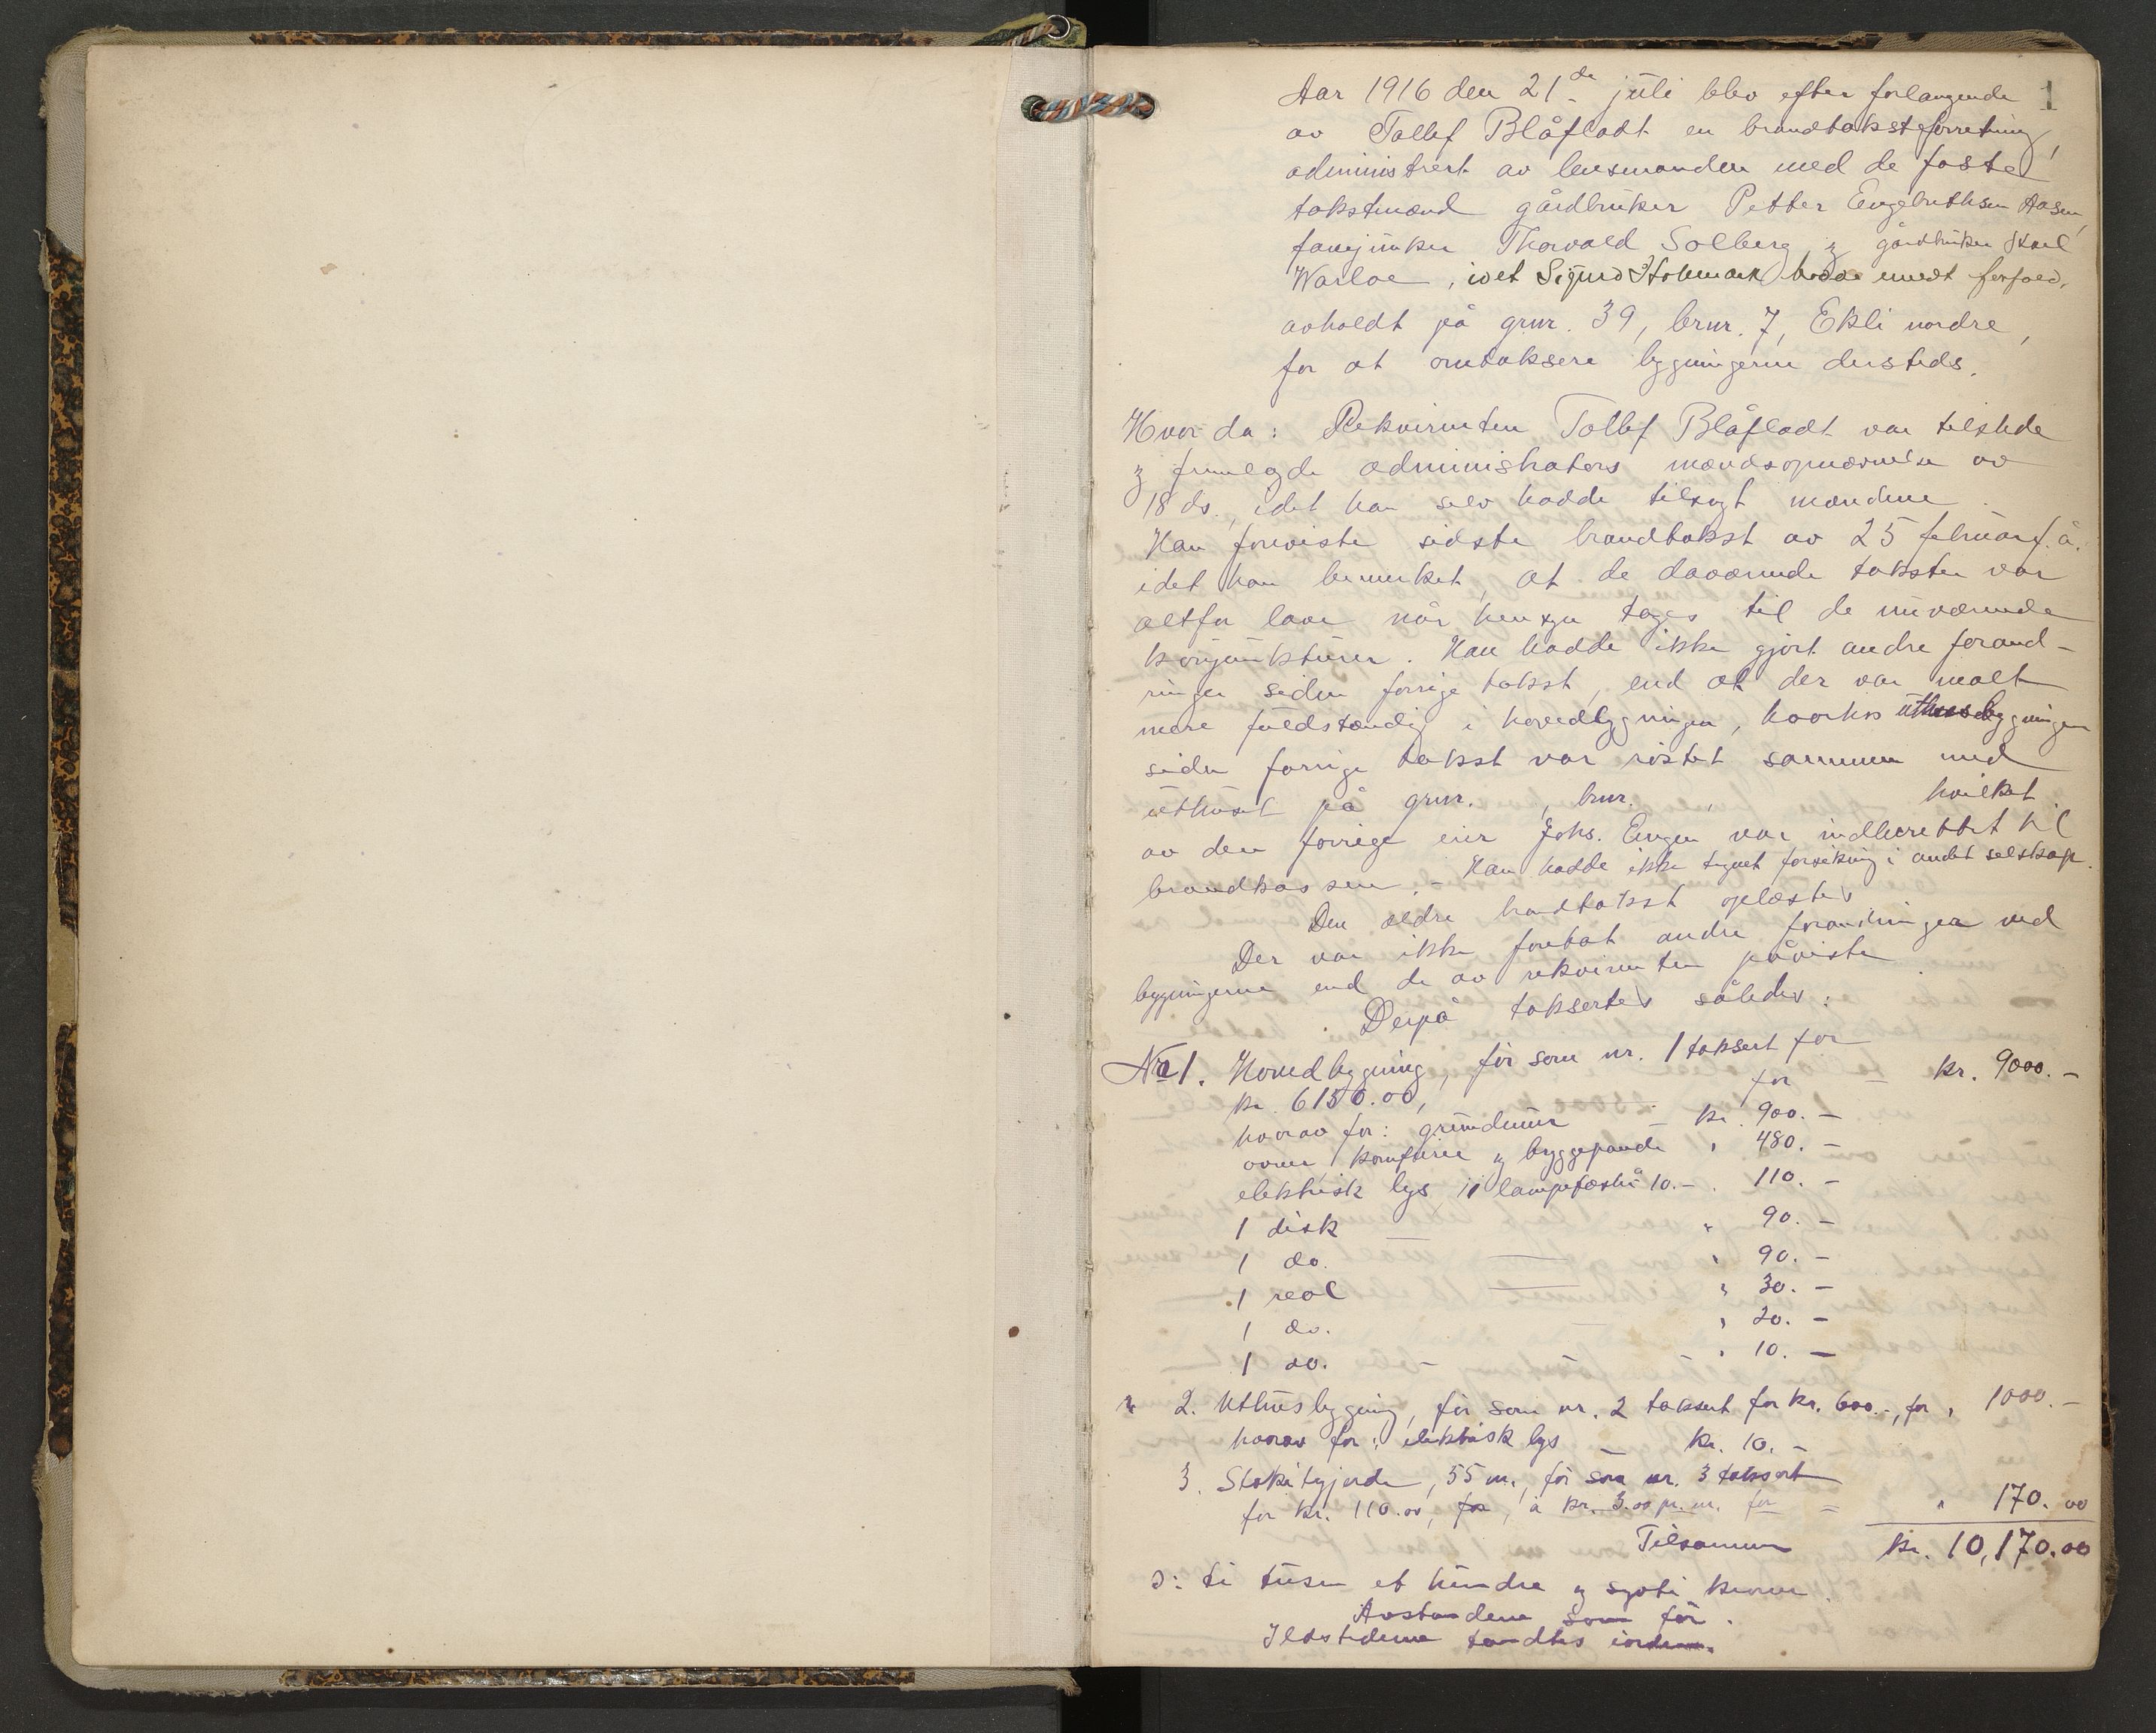 1
Aar 1916 den 21de juli blev efter forlangende
av Tollef Blåfladt en brandtakstforretning,
administrert av lensmanden med de faste
takstmænd gårdbruker Petter Engebrethsen Aasen,
fanejunker Thorvald Solberg, og gårdbruker
Warloe, idet Sigurd hadde meldt forfald,
avholdt på grnr. 39, brnr. 7, Ekli nordre,
for at omtaksere bygningerne dersteds.
Hvor da: Rekvirenten Tollef Blåfladt var tilstede
og fremlagde administrators mændsopnævnelse av
18 ds., idet han selv hadde tilsagt mændene.
Han foreviste sidste brandtakst av 25 februar f. å.
idet han bemerket, at de daværende takster var
altfor lave når hensyn tages til de nuværende
konjunkturer. Han hadde ikke gjort andre forand-
ringer siden forrige takst, end at der var malt
mere fuldstændig i hovedbygningen, hvorhos uthusbygningen
siden forrige takst var røstet sammen med
uthuset på grnr. , brnr. , hvilket
av den forrige eier Johs. Engen var indberettet til
brandkassen. - Han hadde ikke tegnet forsikring i andet selskap.
Den ældre brandtakst oplæstes
Der var ikke foretat andre forandringer ved
bygningerne end de av rekvirenten påviste
Derpå taksertes således:
No 1. Hovedbygning, før som nr. 1 taksert for
kr. 6150.00, for - kr. 9000.-
hvorav for: grundmur - kr. 900.-
ovner, komfurer og bryggepande " 480.-
elektrisk lys 11 lampefæster à 10.- " 110.-
1 disk - " 90.-
1 do. - " 90.-
1 reol - " 30.-
1 do. - " 20.-
1 do. - - - " 10.-
" 2. Uthusbygning, før som nr. 2 taksert for kr. 600.-, for " 1000.-
hvorav for: elektrisk lys - kr. 10.-
3. Stakitgjerde, 55 m., før som nr. 3 taksert
for kr. 110.00, for, à kr. 3.00 pr. m. for = " 170.00
Tilsammen kr. 10,170.00
ɔ: ti tusen et hundre og sytti kroner.
Avstandene som før.
Ildstederne fandtes iorden.